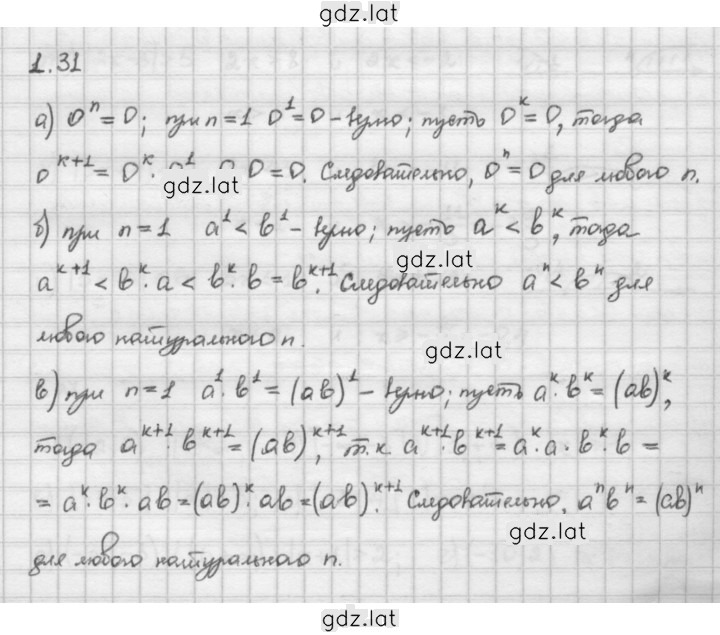 gdz.lat
1.31
а) 0ⁿ = 0; при n = 1 0¹ = 0 – верно; пусть 0ᵏ = 0, тогда
0ᵏ⁺¹ = 0ᵏ · 0 = 0. Следовательно, 0ⁿ = 0 для любого n.
gdz.lat
б) при n = 1 a¹ < b¹ – верно; пусть aᵏ < bᵏ, тогда
gdz.lat
aᵏ⁺¹ < bᵏ · a < bᵏ · b = bᵏ⁺¹. Следовательно aⁿ < bⁿ для
любого натурального n.
gdz.lat
в) при n = 1 a¹ · b¹ = (ab)¹ – верно; пусть aᵏ · bᵏ = (ab)ᵏ,
тогда aᵏ⁺¹ · bᵏ⁺¹ = (ab)ᵏ⁺¹, т.к. aᵏ⁺¹ · bᵏ⁺¹ = aᵏ · a · bᵏ · b =
= aᵏ · bᵏ · ab = (ab)ᵏ · ab = (ab)ᵏ⁺¹. Следовательно, aⁿbⁿ = (ab)ⁿ
gdz.lat
для любого натурального n.
gdz.lat